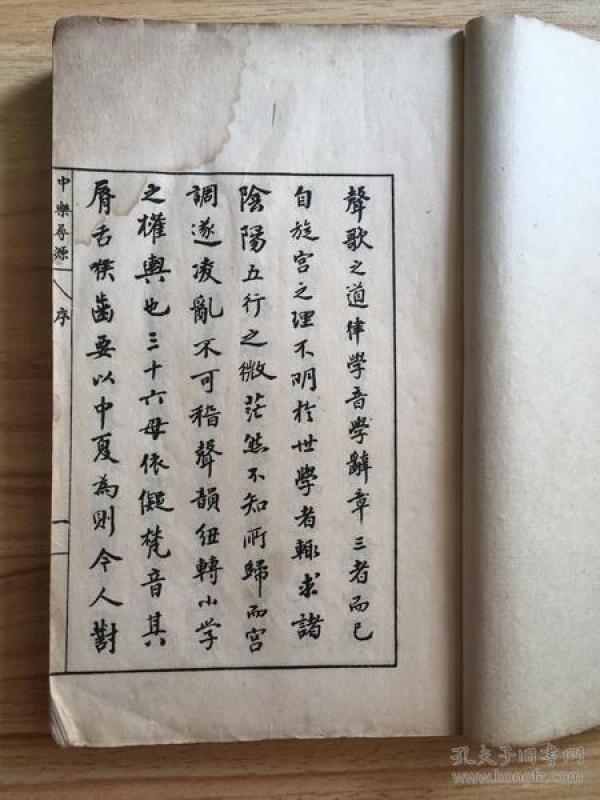 聲歌之道律學音學辭章三者而已
自旋宫之理不明於世學者輙求諸
陰陽五行之微茫然不知所歸而宫
調遂凌亂不可稽聲韻紐轉小学
之權輿也三十六母依儗梵音其
脣舌喉齒要以中夏為則令人對
中樂尋源
序
一
孔夫子旧书网
www.kongfz.com